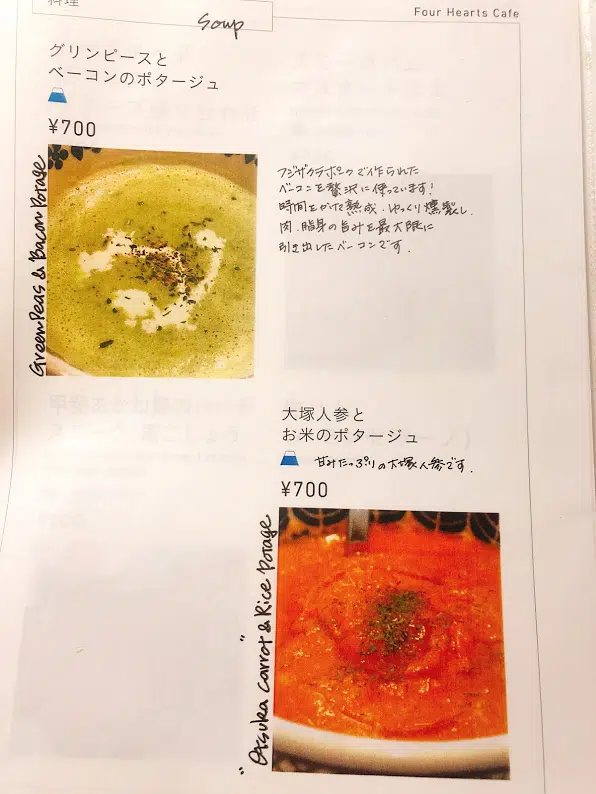 料理
Soup
Four Hearts Cafe
グリンピースと
ベーコンのポタージュ
¥700
GreenPeas & Bacon Potage
フジザクラポークで作られた
ベーコンを贅沢に使っています!
時間をかけて熟成、ゆっくり燻製し、
肉、脂身の旨みを最大限に
引き出したベーコンです。
大塚人参と
お米のポタージュ
甘みたっぷりの大塚人参です。
¥700
"Otsuka Carrot & Rice Potage"